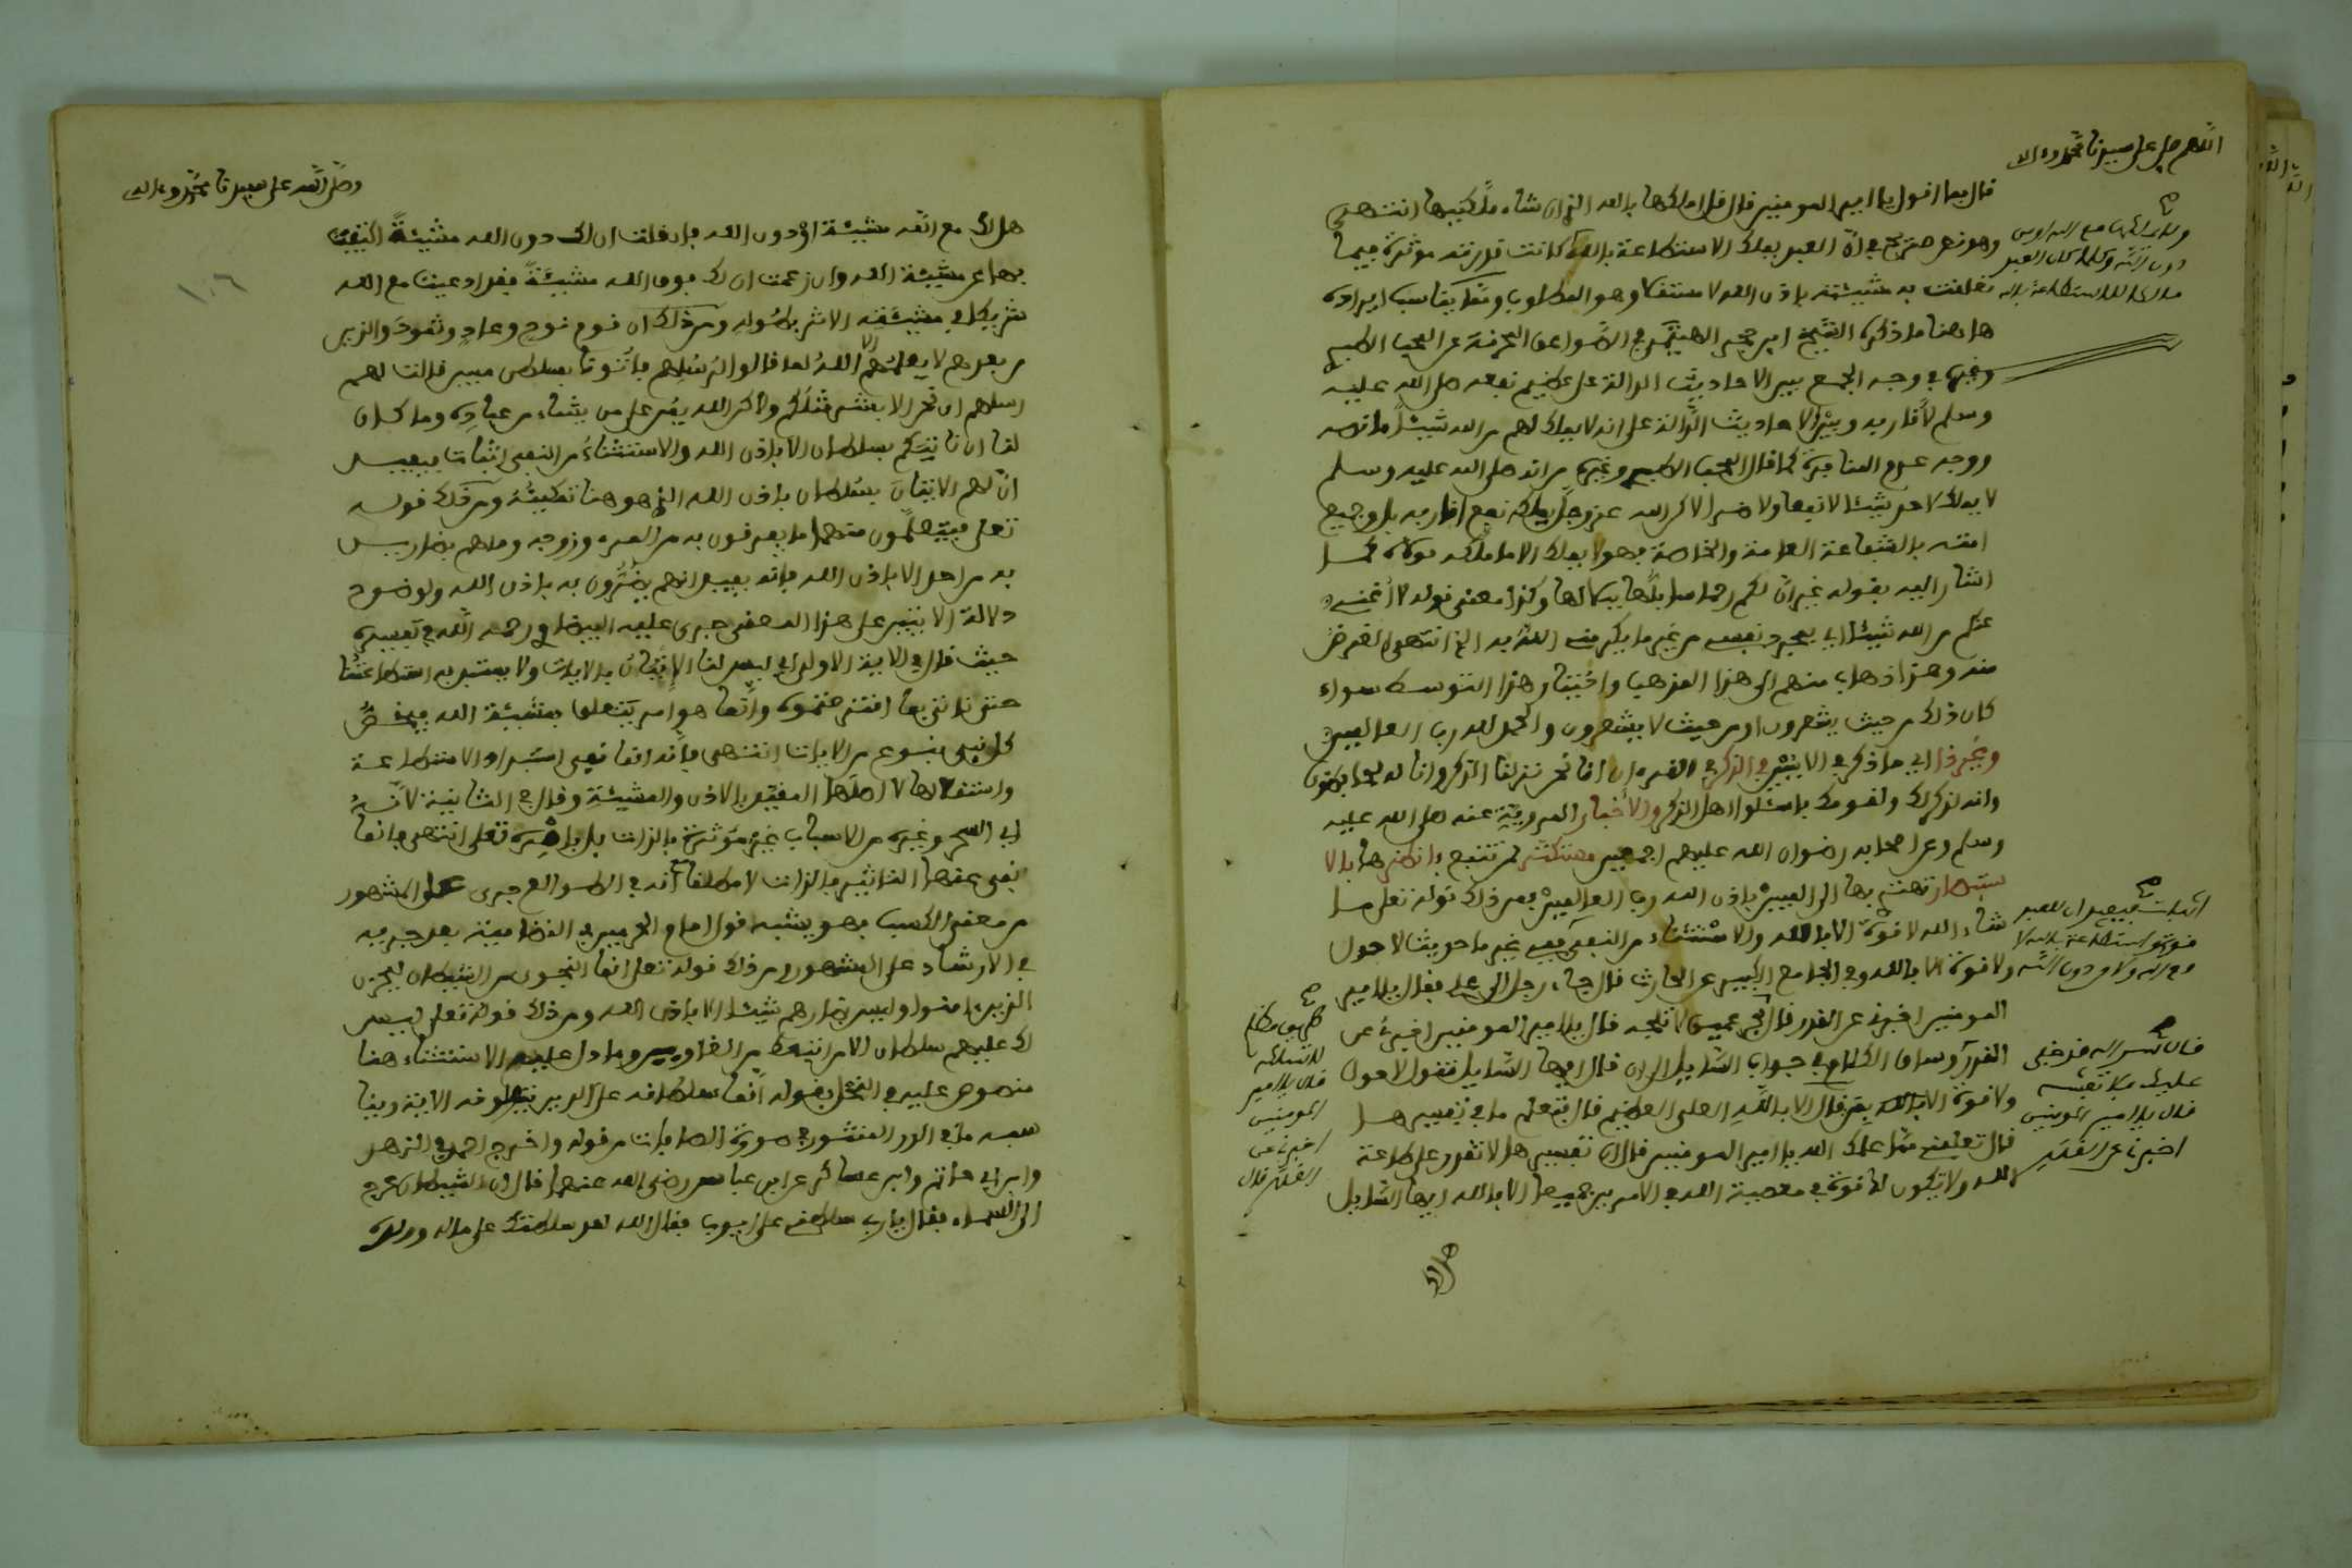 اللهم صل على سيدنا محمد وءاله
قال بما اقول يا امير المومنين قال قل املكها بالله الذي ان شاء ملكنيها انتهى
وهو نص صريح في ان العبد يملك الاستطاعة بالله كانت قدرته موثرة فيما
تعلقت به مشيئته باذن الله لا استقلالا وهو المطلوب ومما يناسب ايراده
هاهنا ما ذكره الشيخ ابن حجر الهيتمي في الصواعق المحرقة عن المحب الطبري
وغيره في وجه الجمع بين الاحاديث الدالة على عظيم نفعه صلى الله عليه
وسلم لاقاربه وبين الاحاديث الدالة على انه لا يملك لهم من الله شيئا ما نصه
ووجه عدم المنافاة كما قال المحب الطبري وغيره من انه صلى الله عليه وسلم
لا يملك لاحد شيئا لا نفعا ولا ضرا لاكن الله عز وجل يملكه نفع اقاربه بل وجميع
امته بالشفاعة العامة والخاصة فهو لا يملك الا ما ملكه مولاه كما
اشار اليه بقوله غير ان لكم رحما سابلها ببلالها وكذا معنى قوله لا اغني
عنكم من الله شيئا اي بمجرد نفسي من غير ما يكرمني الله به الخ انتهى الغرض
منه وهذا ذهاب منهم الى هذا المذهب واختيار هذا التوسط سواء
كان ذلك من حيث يشعرون او من حيث لا يشعرون والحمد لله رب العالمين
وانه لذكر لك ولقومك فاسئلوا اهل الذكر والاخبار المروية عنه صلى الله عليه
وسلم وعن اصحابه رضوان الله عليهم اجمعين
بها الى اليمين باذن الله رب العالمين بعد ذلك قوله تعلى ما
شاء الله لا قوة الا بالله والاستثناء من النفي غير ما حديث لا حول
ولا قوة الا بالله وفي الجامع الكبير عن الحارث قال جاء رجل الى علي فقال يا امير
المومنين اخبرني عن القدر قال بحر عميق لا تلجه قال يا امير المومنين اخبرني عن
القدر وساق الكلام في جواب السايل الى ان قال ايها السايل تقول لا حول
ولا قوة الا بالله قال الا بالله العلي العظيم قال فتعلم ما في تفسيرها
قال تعلمني مما علمك الله يا امير المومنين قال ان تفسيرها لا تقدر على طاعة
الله ولا تكون له قوة في معصية الله في الامرين جميعا الا بالله ايها السايل
هل لك
قال سر الله قد خفي
عليك فلا تفشه
قال يا امير المومنين
اخبرني عن القدر
طريق مظلم
لا تسلكه
قال يا امير
المومنين
اخبرني عن
القدر قال
وصلى الله على سيدنا محمد وءاله
هل لك مع الله مشيئة او دون الله فان قلت ان لك دون الله مشيئة اكتفيت
بها عن مشيئة الله وان زعمت ان لك فوق الله مشيئة فقد ادعيت مع الله
شريكا في مشيئته الاثر بطوله ومن ذلك ان قوم نوح وعاد وثمود والذين
من بعدهم لا يعلمهم الا الله لما قالوا لرسلهم فاتونا بسلطن مبين قالت لهم
رسلهم ان نحن الا بشر مثلكم ولاكن الله يمن على من يشاء من عباده وما كان
لنا ان ناتيكم بسلطان الا باذن الله والاستثناء من النفي اثبات فيفيد
ان لهم الاتيان بسلطان باذن الله الذي هو هنا تمكينه ومن ذلك قوله
تعلى فيتعلمون منهما ما يفرقون به بين المرء وزوجه وما هم بضارين
به من احد الا باذن الله فانه يفيد انهم يضرون به باذن الله ولوضوح
دلالة الايتين على هذا المعنى جرى عليه البيضاوي رحمه الله في تفسيره
حيث قال في الاية الاولى اي ليس لنا الاتيان بالايات ولا يستبد به استطاعتنا
حتى ناتي بما اقترحتموه وانما هو امر يتعلق بمشيئة الله فيخص
كل نبي بنوع من الايات انتهى فانه انما نفى استبداد الاستطاعة
واستقلالها لا اصلها المقيد بالاذن والمشيئة وقال في الثانية لانه
اي السحر وغيره من الاسباب غير موثرة بالذات بل بامره تعلى انتهى فانما
نفى عنها التاثير بالذات لا مطلقا لانه في الطوالع جرى على المشهور
من معنى الكسب فهو يشبه قول امام الحرمين في النظامية بعد جريه
في الارشاد على المشهور ومن ذلك قوله تعلى انما النجوى من الشيطان ليحزن
الذين ءامنوا وليس بضارهم شيئا الا باذن الله ومن ذلك قوله تعلى ليس
لك عليهم سلطان الا من اتبعك من الغاوين وما دل عليه الاستثناء هنا
منصوص عليه في النحل بقوله انما سلطانه على الذين يتولونه الاية وبينا
سببه ما في الدر المنثور في سورة الصافات من قوله واخرج احمد في الزهد
وابن ابي حاتم وابن عساكر عن ابن عباس رضي الله عنهما قال ان الشيطان عرج
الى السماء فقال يا رب سلطني على ايوب فقال الله لقد سلطتك على ماله وولده
١٠٦